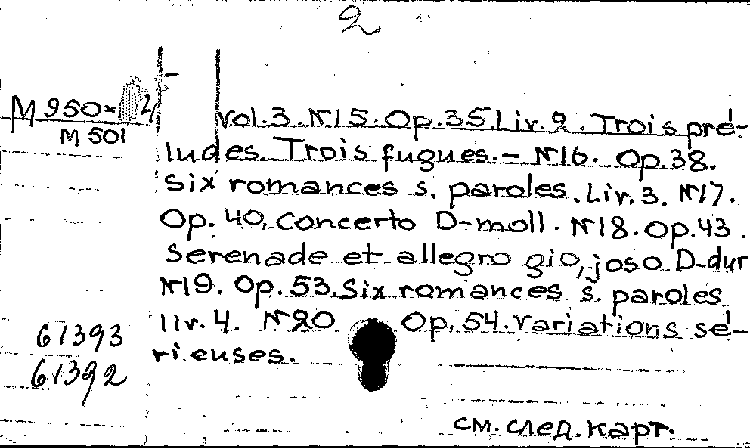 2
M 950-
M 501
Vol.3. №15. Op.35 Liv.2. Trois pré-
ludes. Trois fugues. – №16. Op.38.
Six romances s. paroles. Liv.3. №17.
Op. 40. Concerto D-moll. №18. Op.43.
Serenade et allegro gio,joso D-dur
№19. Op.53. Six romances s. paroles
liv.4. №20 Op.54. Variations sé-
rieuses.
61393
61392
см. след. карт.